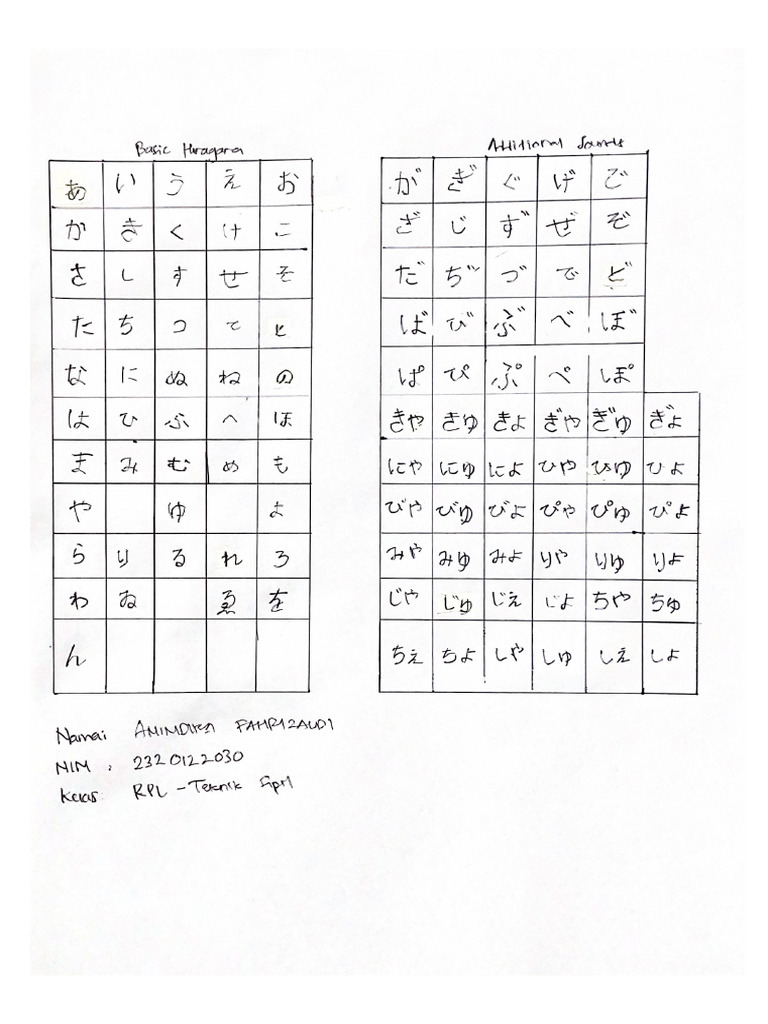 Basic Hiragana
あ い う え お
か き く け こ
さ し す せ そ
た ち つ て と
な に ぬ ね の
は ひ ふ へ ほ
ま み む め も
や ゆ よ
ら り る れ ろ
わ ゐ ゑ を
ん
Additional Sounds
が ぎ ぐ げ ご
ざ じ ず ぜ ぞ
だ ぢ づ で ど
ば び ぶ べ ぼ
ぱ ぴ ぷ ぺ ぽ
きゃ きゅ きょ ぎゃ ぎゅ ぎょ
にゃ にゅ にょ ひゃ ひゅ ひょ
びゃ びゅ びょ ぴゃ ぴゅ ぴょ
みゃ みゅ みょ りゃ りゅ りょ
じゃ じゅ じぇ じょ ちゃ ちゅ
ちぇ ちょ しゃ しゅ しぇ しょ
Nama:
NIM : 2320122030
Kelas: RPL - Teknik Sipil